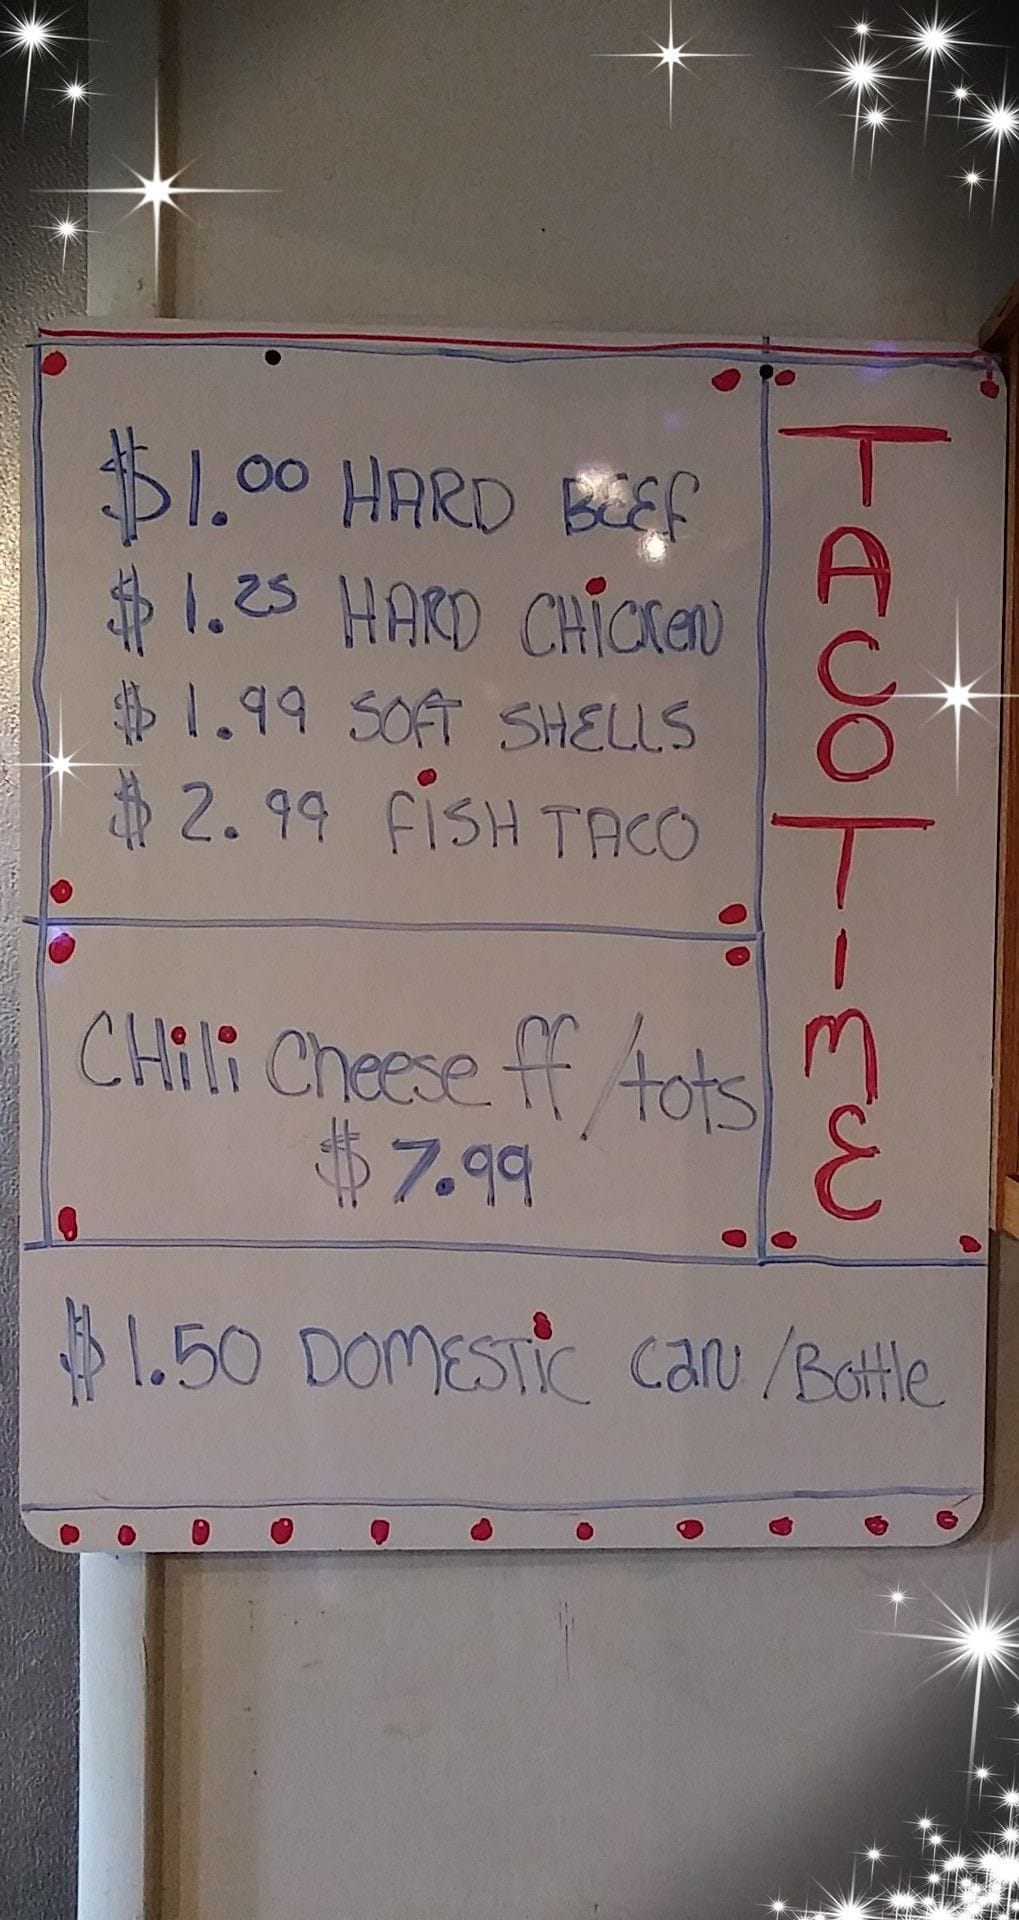 $1.00 HARD BEEF
$1.25 HARD CHiCKeN
$1.99 SOFT SHELLS
$2.99 FiSH TACO
CHili Cheese ff/tots
$7.99
TACO TIME
$1.50 DOMESTiC Can/Bottle